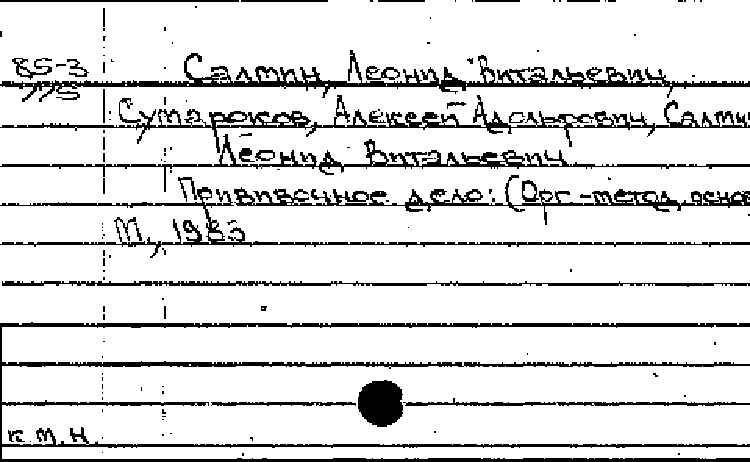 85-3
775
Салтин, Леонид Витальевич,
Сумароков, Алексей Адольфович, Салтин
Леонид Витальевич.
Прививочное дело: (Орг.-метод. основ
М., 1985
к.т.н.